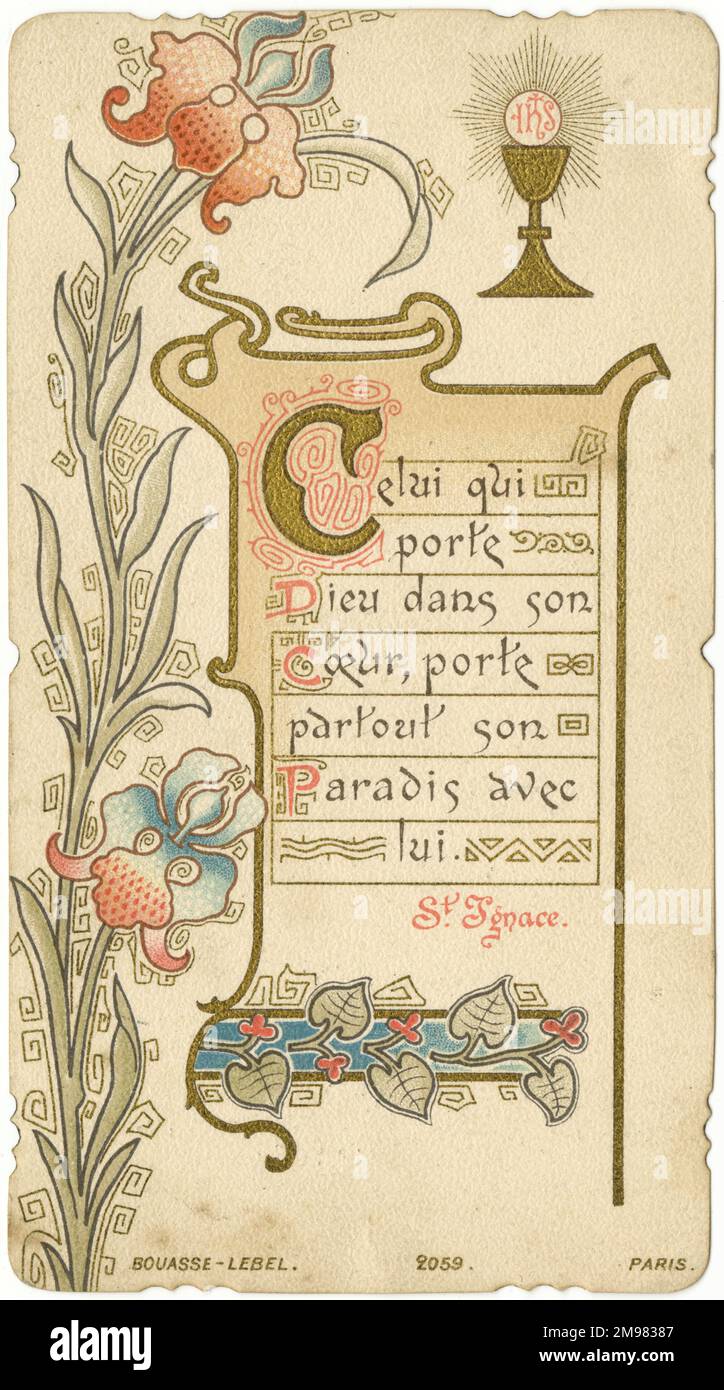 IHS
Celui qui
porte
Dieu dans son
Cœur, porte
partout son
Paradis avec
lui.
St. Ignace.
BOUASSE-LEBEL. 2059. PARIS.
alamy
Image ID: 2M98387
www.alamy.com